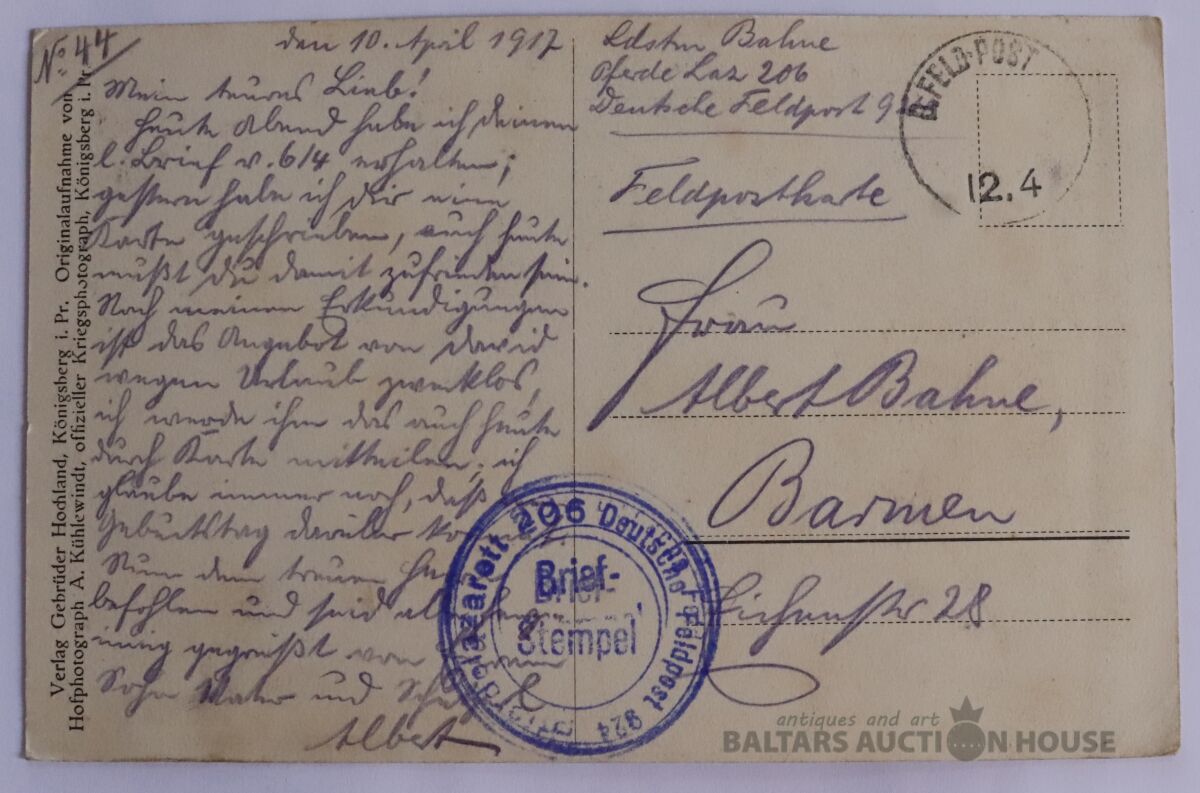 No. 44
den 10. April 1917
Mein teures Lieb!
Heute Abend habe ich Deinen
l. Brief v. 6/4 erhalten;
gestern habe ich Dir eine
Karte geschrieben, auch heute
mußt Du damit zufrieden sein.
Nach meinen Erkundigungen
ist das Angebot von David
wegen Urlaub zwecklos,
ich werde ihm das auch heute
durch Karte mitteilen; ich
glaube immer noch, daß
Geburtstag darüber
Nun dem treuen
befohlen und seid alle
innig gegrüßt von
Sohn Vater und
Albert
Ldstm Bahne
Pferde Laz 206
Deutsche Feldpost 9
Feldpostkarte
Frau
Albert Bahne,
Barmen
Eichenstr 28
D. FELD-POST
12.4
Pferdelazarett 206 Deutsche Feldpost 924
Brief-
Stempel
Verlag Gebrüder Hochland, Königsberg i. Pr. Originalaufnahme von
Hofphotograph A. Kühlewindt, offizieller Kriegsphotograph, Königsberg i. Pr.
antiques and art
BALTARS AUCTION HOUSE